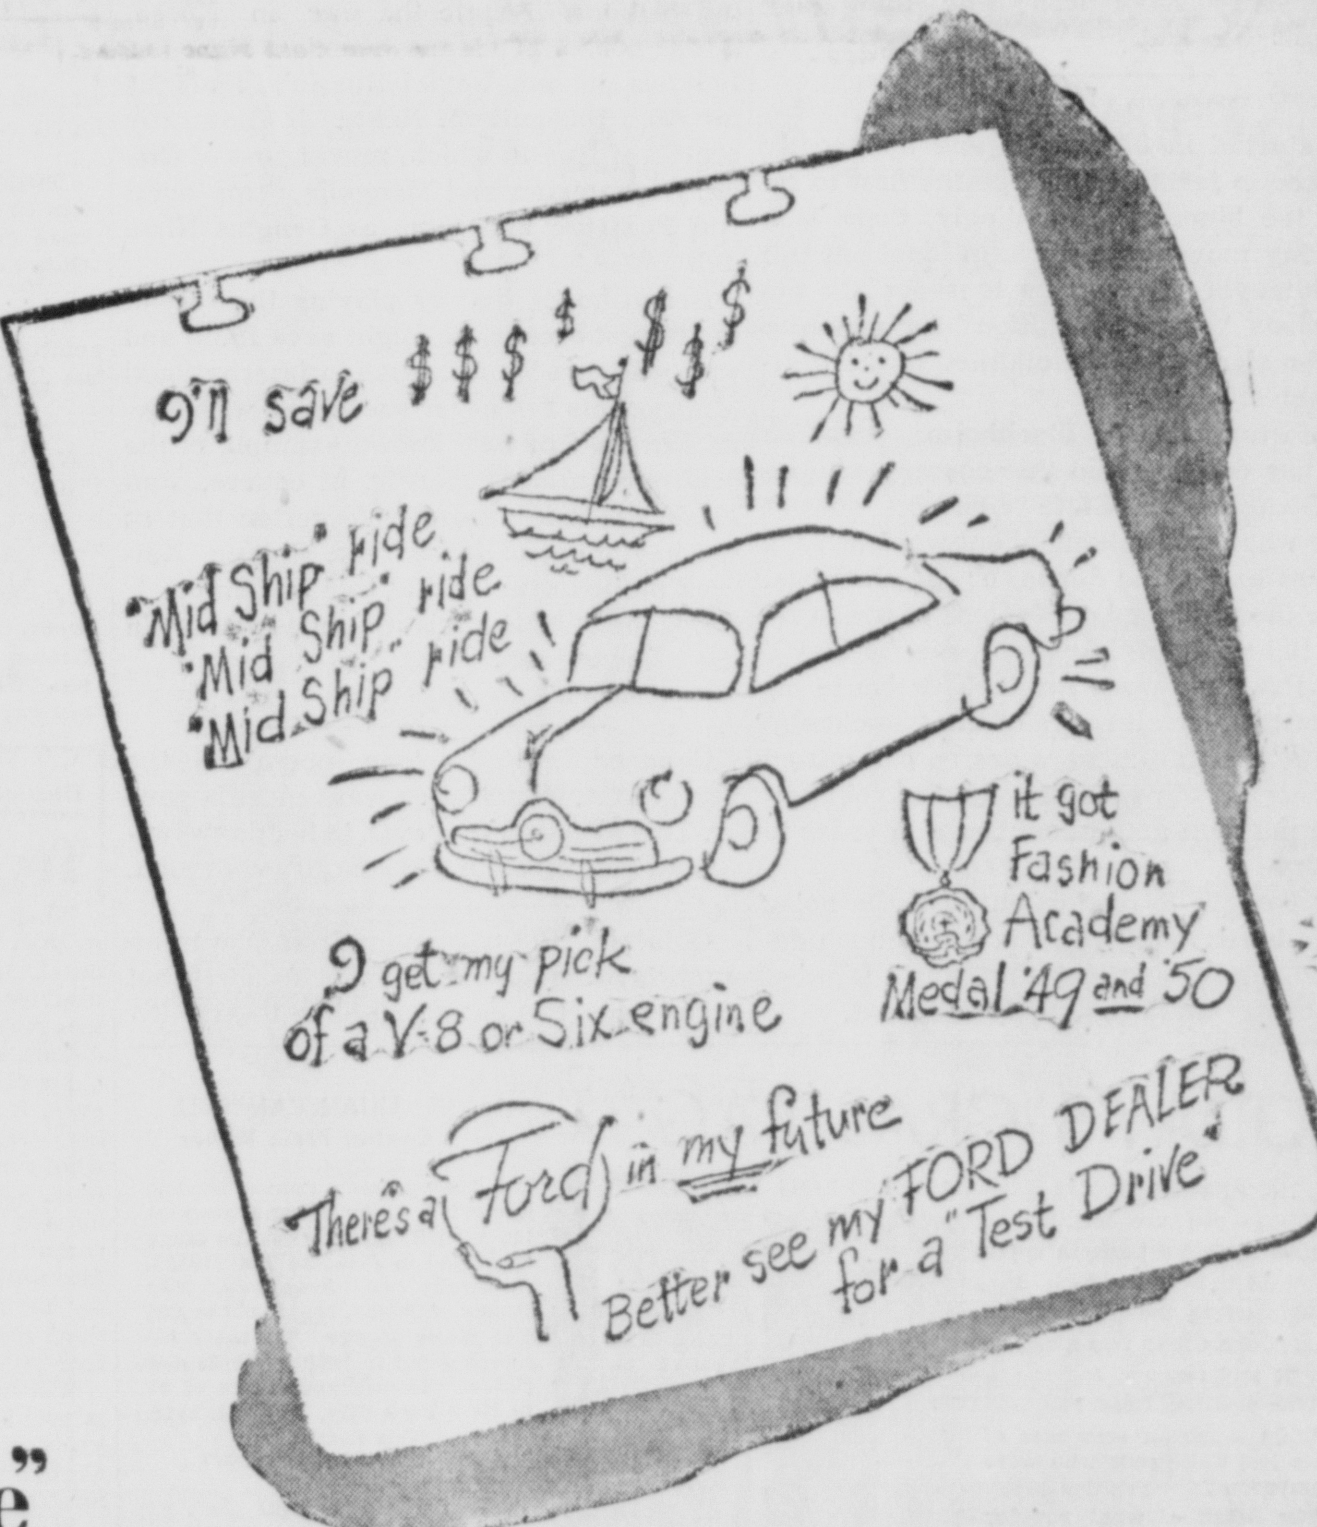 I'll save $ $ $ $ $ $ $
"Mid Ship" ride
"Mid Ship" ride
"Mid Ship" ride
it got
Fashion
Academy
Medal '49 and '50
I get my pick
of a V-8 or Six engine
"There's a Ford in my future
Better see my FORD DEALER
for a "Test Drive"
e"